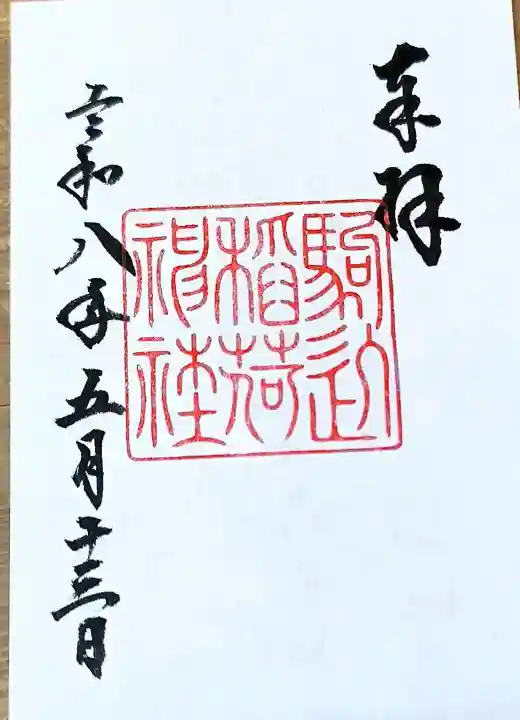 奉拝
駒込
稲荷
神社
令和八年五月十三日